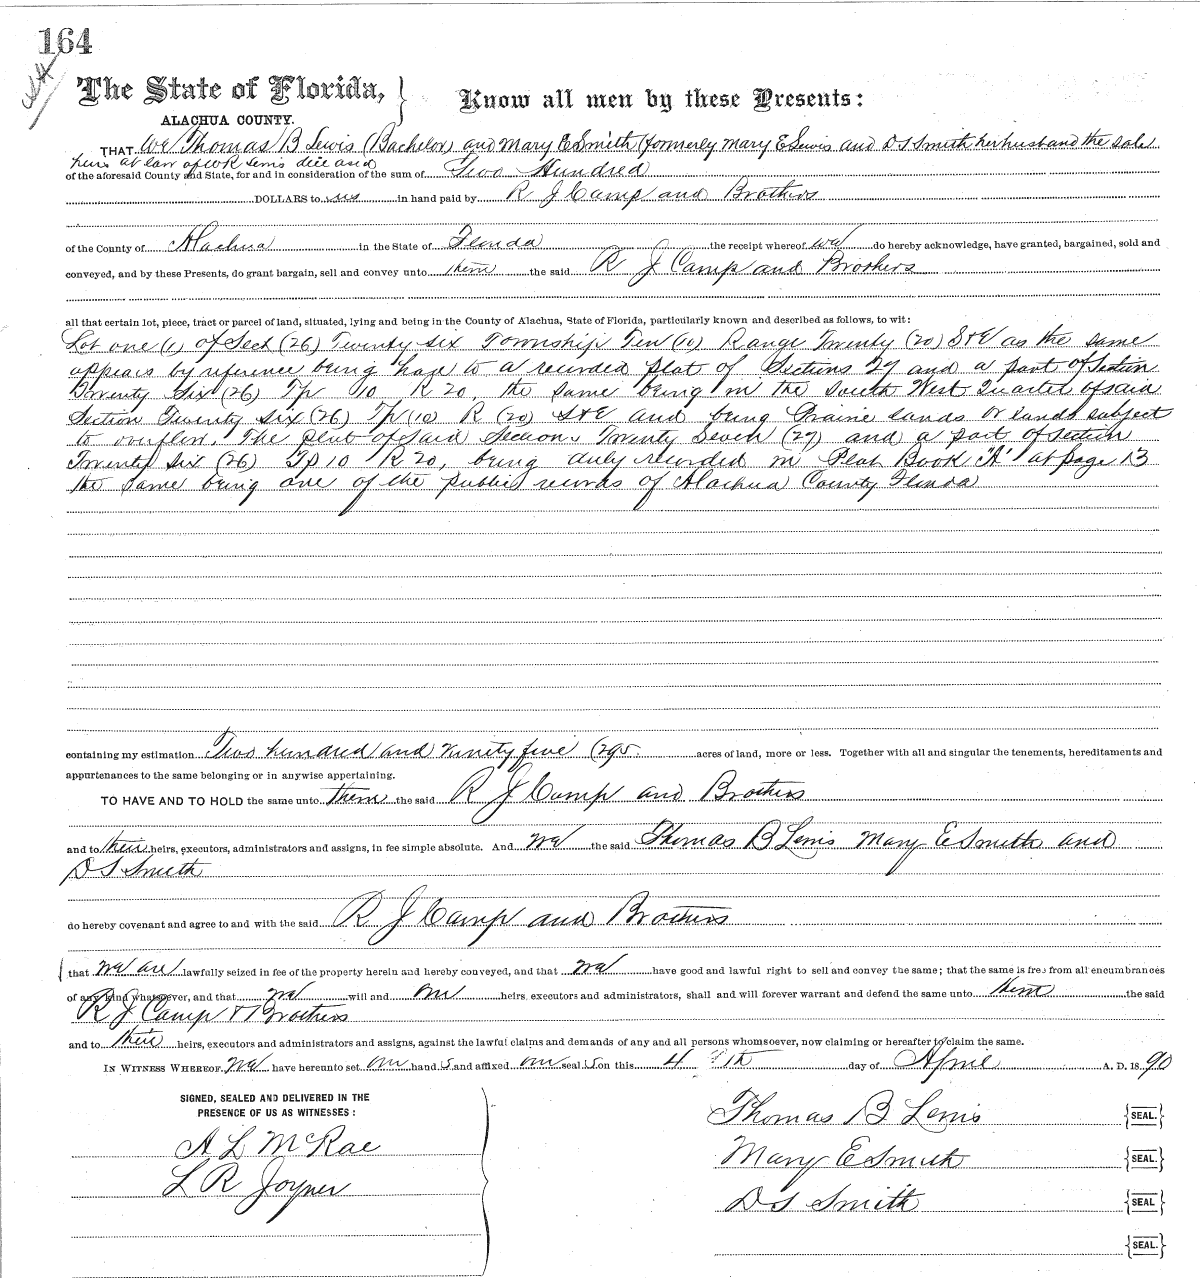 164
The State of Florida,
ALACHUA COUNTY.
Know all men by these Presents:
THAT We Thomas B Lewis (Bachelor) and Mary E Smith (formerly Mary E Lewis and D S Smith her husband the sole
heirs at law of W R Lewis dice and
of the aforesaid County and State, for and in consideration of the sum of Two Hundred
DOLLARS to us in hand paid by R J Camp and Brothers
of the County of Alachua in the State of Florida the receipt whereof we do hereby acknowledge, have granted, bargained, sold and
conveyed, and by these Presents, do grant bargain, sell and convey unto them the said R J Camp and Brothers
all that certain lot, piece, tract or parcel of land, situated, lying and being in the County of Alachua, State of Florida, particularly known and described as follows, to wit:
Lot one (1) of Sect (26) Twenty six Township Ten (10) Range Twenty (20) S&E as the same
appears by reference being had to a recorded plat of Sections 27 and a part of Section
Twenty Six (26) Tp 10 R 20, the same being in the South West Quarter of said
Section Twenty six (26) Tp (10) R (20) S&E and being Prairie lands or lands subject
to overflow. The plat of said Section Twenty Seven (27) and a part of Section
Twenty six (26) Tp 10 R 20, being duly recorded in Plat Book "A" at page 13
the same being one of the public records of Alachua County Florida
containing my estimation Two hundred and ninety five (295 acres of land, more or less. Together with all and singular the tenements, hereditaments and
appurtenances to the same belonging or in anywise appertaining.
TO HAVE AND TO HOLD the same unto them the said R J Camp and Brothers
and to their heirs, executors, administrators and assigns, in fee simple absolute. And we the said Thomas B Lewis Mary E Smith and
D S Smith
do hereby covenant and agree to and with the said R J Camp and Brothers
that we are lawfully seized in fee of the property herein and hereby conveyed, and that we have good and lawful right to sell and convey the same; that the same is free from all encumbrances
of any kind whatsoever, and that we will and our heirs, executors and administrators, shall and will forever warrant and defend the same unto them the said
R J Camp & Brothers
and to their heirs, executors and administrators and assigns, against the lawful claims and demands of any and all persons whomsoever, now claiming or hereafter to claim the same.
IN WITNESS WHEREOF, we have hereunto set our hand s and affixed our seal s on this 4 th day of April A. D. 1890
SIGNED, SEALED AND DELIVERED IN THE
PRESENCE OF US AS WITNESSES:
A L McRae
L R Joyner
Thomas B Lewis {SEAL.}
Mary E Smith {SEAL.}
D S Smith {SEAL}
{SEAL.}